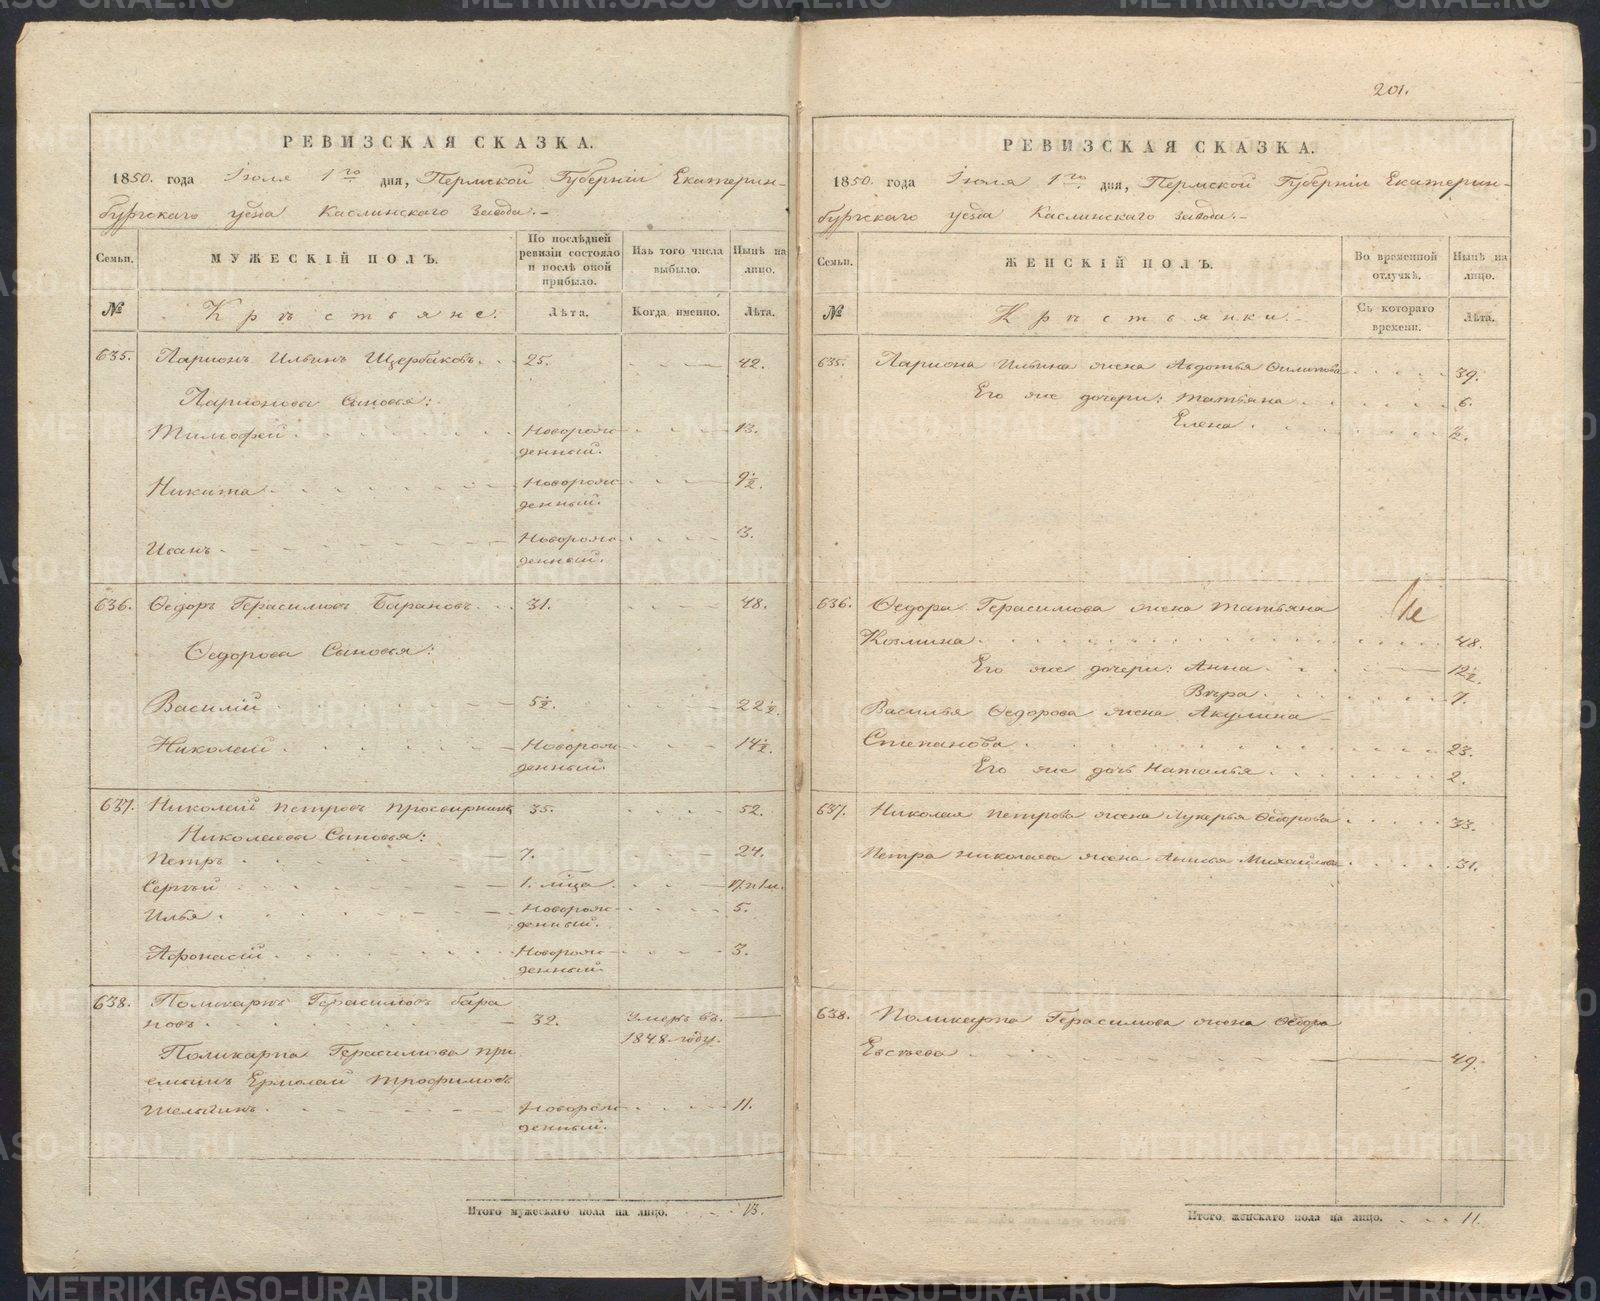 РЕВИЗСКАЯ СКАЗКА.
1850. года Іюля 1го дня, Пермской Губерніи Екатерин-
бургскаго уезда Каслинскаго Завода.-
Семьи.
МУЖЕСКІЙ ПОЛЪ.
По послѣдней ревизіи состояло и послѣ оной прибыло.
Изъ того числа выбыло.
Нынѣ на лицо.
№
Крѣстьяне.
Лѣта.
Когда именно.
Лѣта.
635. Ларионъ Ильинъ Щербаковъ. 25. 42.
Ларионова Сыновья:
Тимофей Новорож- 13.
денный.
Никита Новорож- 9½.
денный.
Иванъ Новорож- 3.
денный.
636. Ѳедоръ Герасимовъ Барановъ. 31. 48.
Ѳедорова Сыновья:
Василій 5½. 22½.
Николай Новорож- 14½.
денный.
637. Николай Петровъ Просвирнинъ 35. 52.
Николаевы Сыновья:
Петръ 7. 24.
Сергѣй 1. м-ца
Илья Новорож- 5.
денный.
Афонасій Новорож- 3.
денный.
638. Поликарпъ Герасимовъ Бара
новъ 32. Умеръ въ.
1848. году.
Поликарпа Герасимова прі
емышъ Ермолай Трофимовъ
Шелыгинъ Новорож- 11.
денный.
Итого мужескаго пола на лицо. 13.
201.
РЕВИЗСКАЯ СКАЗКА.
1850. года Іюля 1го дня, Пермской Губерніи Екатерин-
бургскаго уезда Каслинскаго Завода.-
Семьи.
ЖЕНСКІЙ ПОЛЪ.
Во временной отлучкѣ.
Нынѣ на лицо.
№
Крѣстьянки.
Съ котораго времени.
Лѣта.
635. Лариона Ильина жена Авдотья Филипова 39.
Его же дочери: Татьяна 6.
Елена ½.
636. Ѳедора Герасимова жена Татьяна
Козмина 48.
Его же дочери: Анна 12½.
Вѣра 7.
Василья Ѳедорова жена Акулина
Степанова 23.
Его же дочь Наталья 2.
637. Николая Петрова жена Лукерья Ѳедорова 33.
Петра Николаева жена Анисья Михайлова 31.
638. Поликарпа Герасимова жена Ѳедора
Евсѣева 49.
Итого женскаго пола на лицо. 11.
METRIKI.GASO-URAL.RU